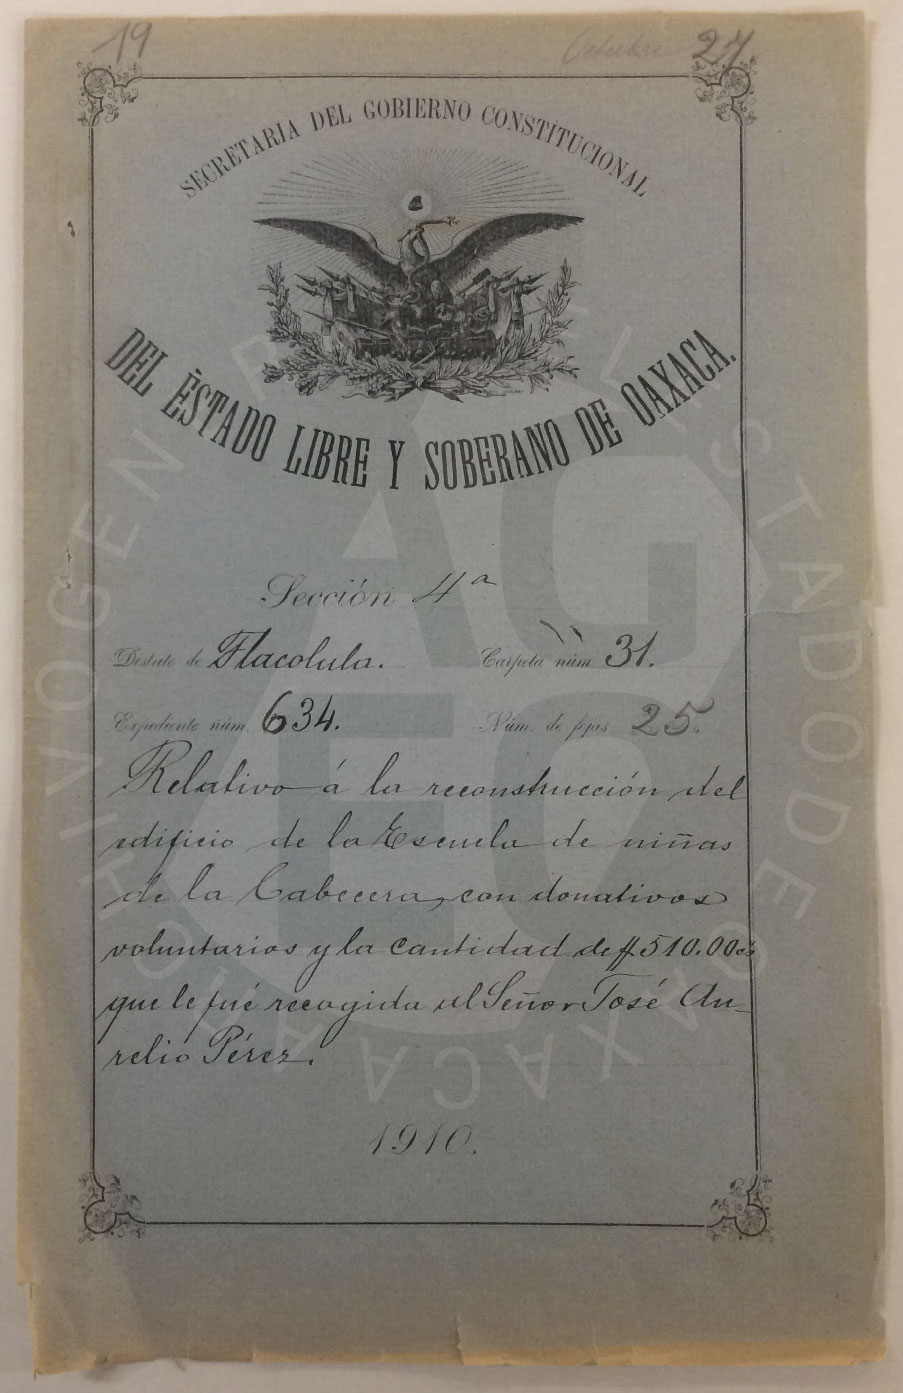 19
Octubre 27
SECRETARIA DEL GOBIERNO CONSTITUCIONAL
DEL ESTADO LIBRE Y SOBERANO DE OAXACA.
Sección 4ª
Distrito de Tlacolula. Carpeta núm. 31.
Expediente núm. 634. Núm. de fojas 25.
Relativo á la reconstrucción del
edificio de la Escuela de niñas
de la Cabecera, con donativos
voluntarios y la cantidad de $510.00 cs
que le fué recogida al Señor José Au-
relio Pérez.
1910.
ARCHIVO GENERAL DEL ESTADO DE OAXACA
AGEO